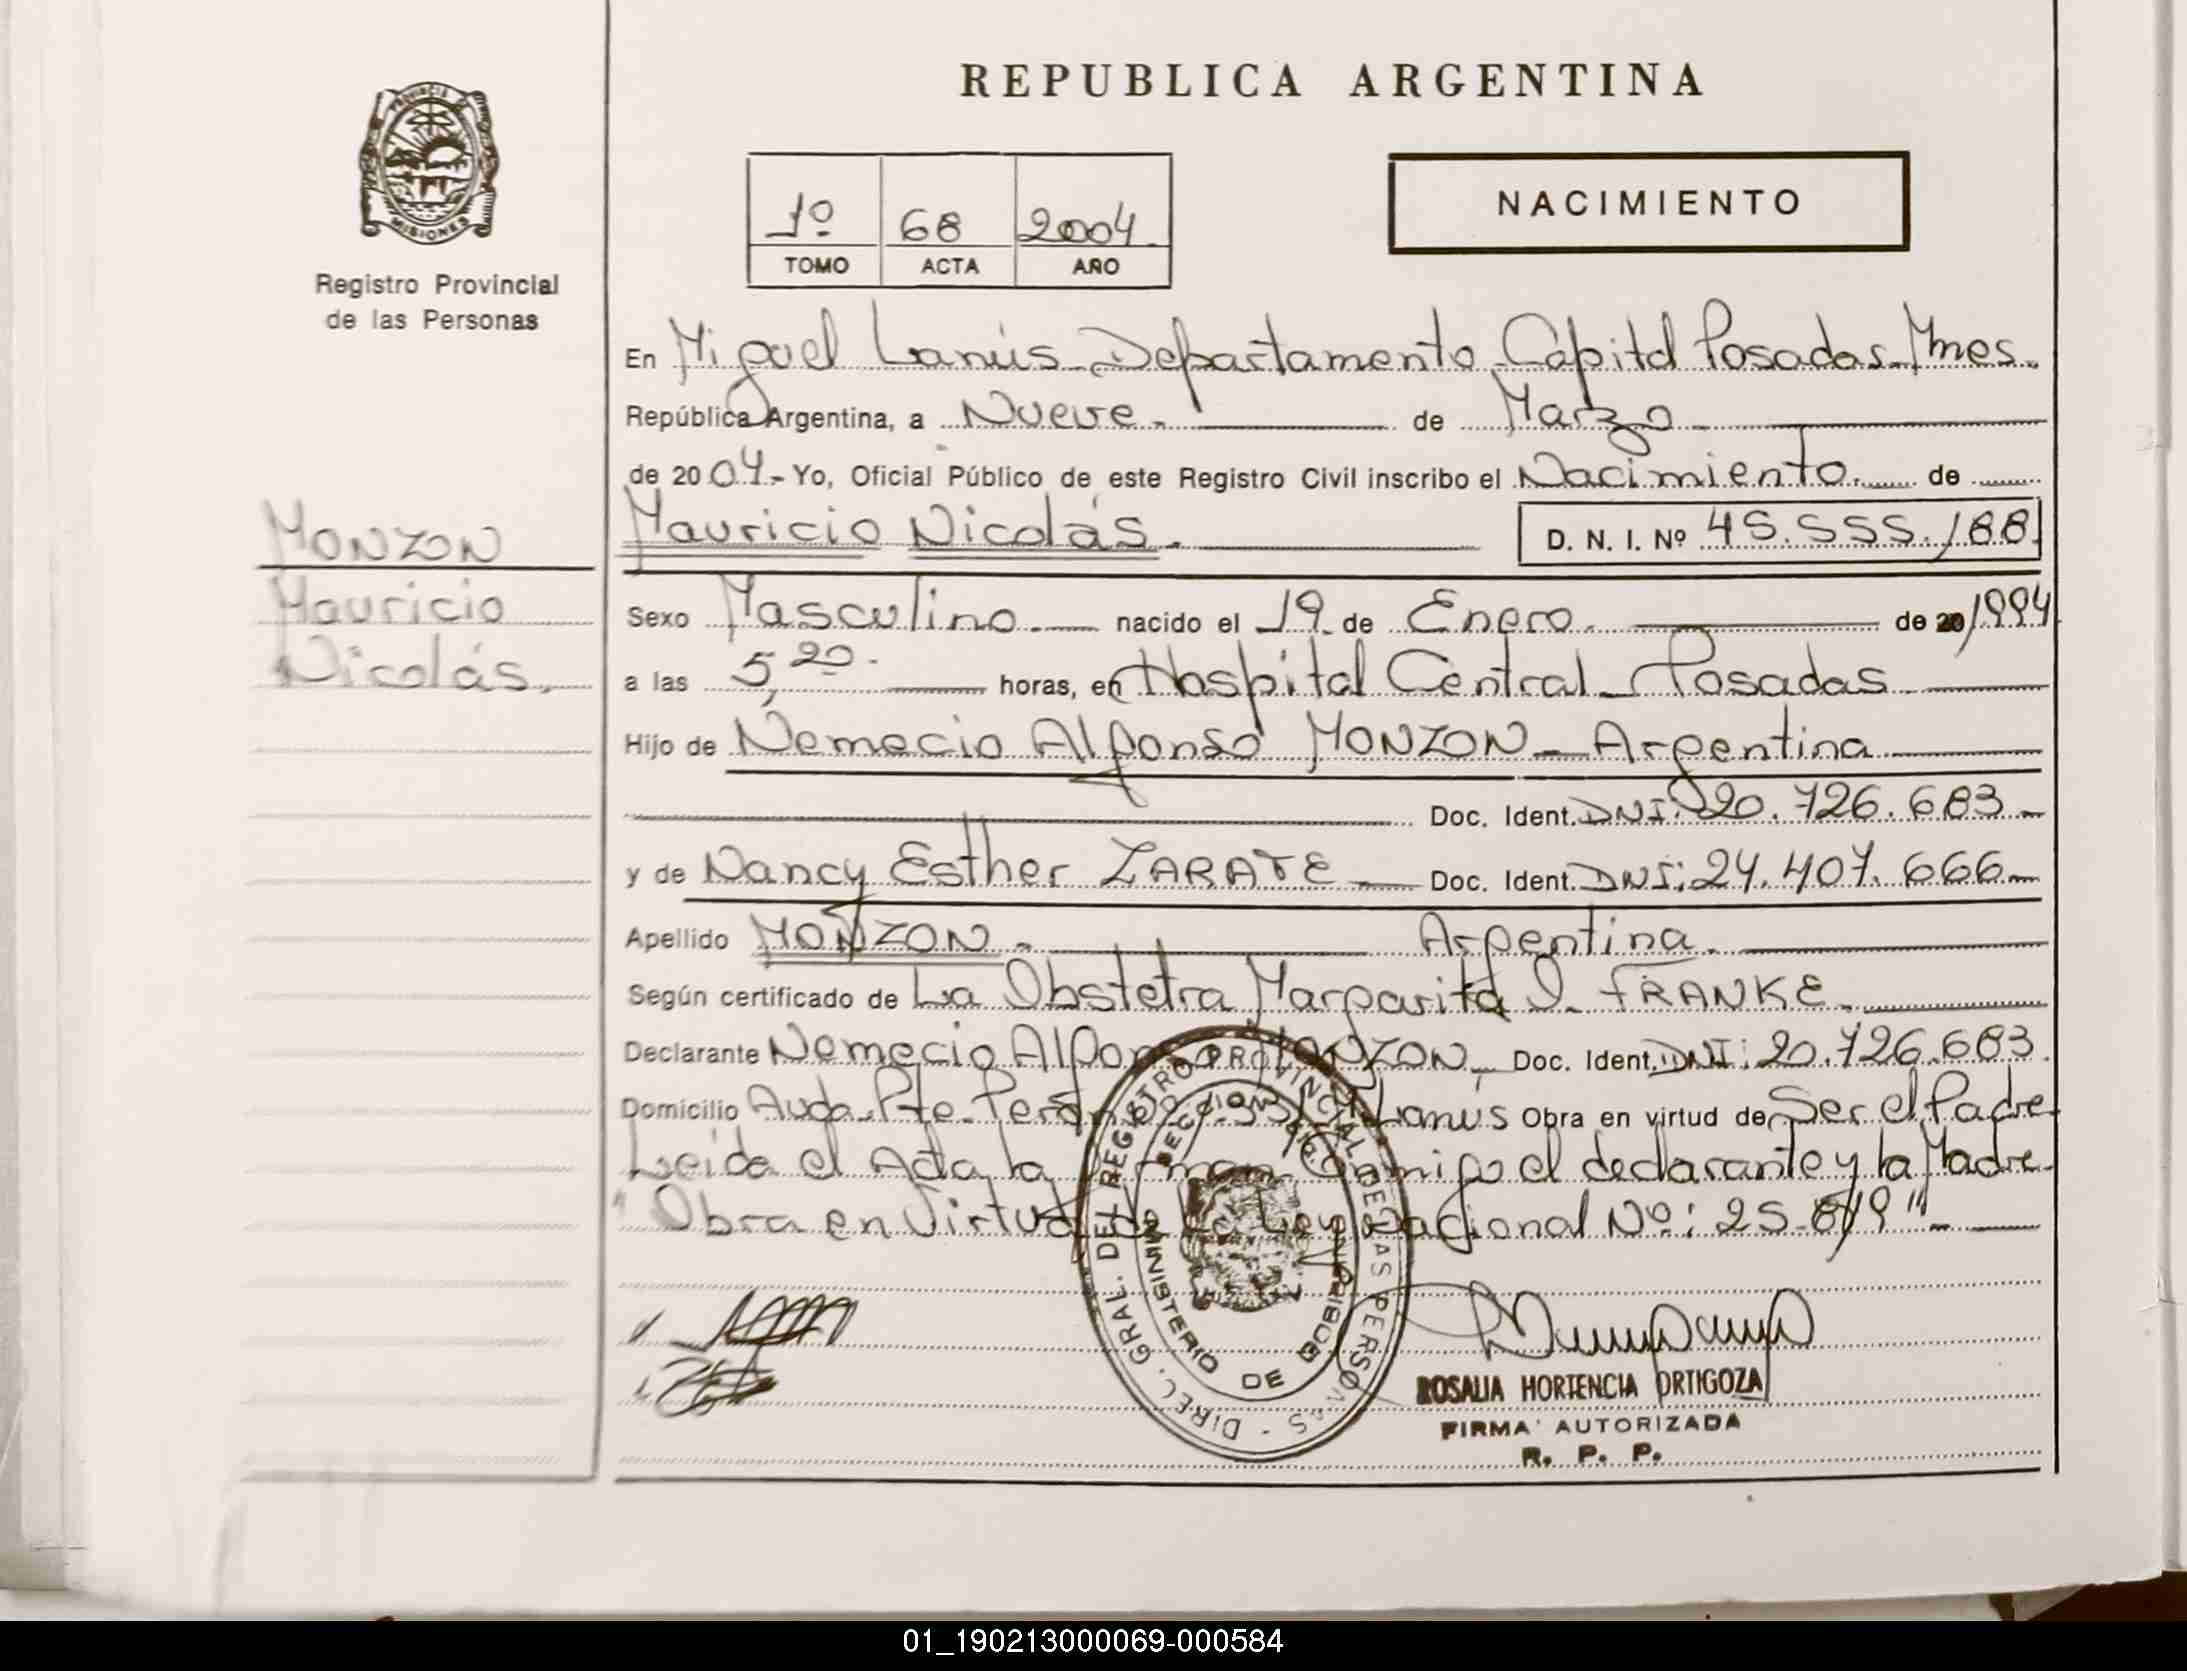 REPUBLICA ARGENTINA
PROVINCIA DE MISIONES
Registro Provincial
de las Personas
1º 68 2004.
TOMO ACTA AÑO
NACIMIENTO
En Miguel Lanús. Departamento Capital Posadas. Mnes.
República Argentina, a Nueve. de Marzo
de 2004.- Yo, Oficial Público de este Registro Civil inscribo el Nacimiento. de
Mauricio Nicolás. D. N. I. Nº 45.555.188.
MONZON
Mauricio
Nicolás.
Sexo Masculino. nacido el 19. de Enero. de 20/1994
a las 5,20. horas, en Hospital Central Posadas
Hijo de Nemecio Alfonso MONZON - Argentina
Doc. Ident. DNI: 20.726.683.-
y de Nancy Esther ZARATE Doc. Ident. DNI: 24.407.666.-
Apellido MONZON. Argentina.
Según certificado de La Obstetra Margarita I. FRANKE.
Declarante Nemecio Alfonso MONZON, Doc. Ident. DNI: 20.726.683.
Domicilio Avda. Pte. Perón Lanús Obra en virtud de Ser el Padre
Leida el Acta la firman Conmigo el declarante y la Madre.
"Obra en Virtud de la Ley Nacional Nº: 25.819"-
DIREC. GRAL. DEL REGISTRO PROVINCIAL DE LAS PERSONAS -
MINISTERIO DE GOBIERNO
ROSALIA HORTENCIA ORTIGOZA
FIRMA AUTORIZADA
R. P. P.
01_190213000069-000584